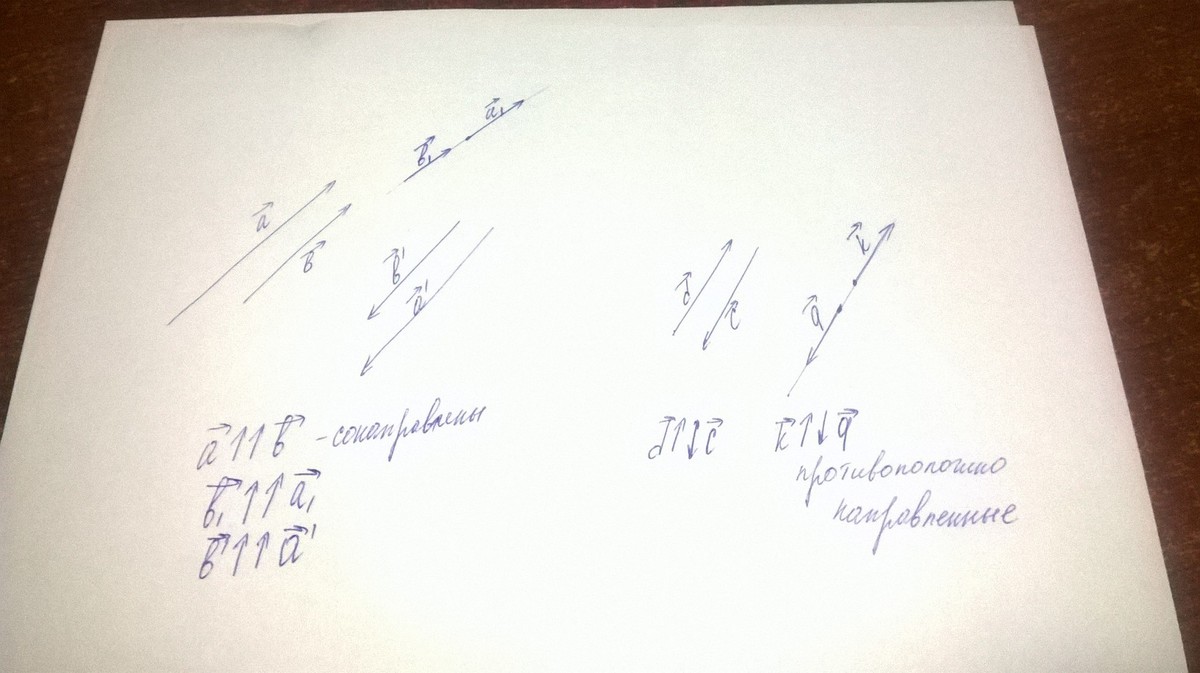 a⃗₁
b⃗₁
a⃗
b⃗
b⃗'
a⃗'
d⃗
c⃗
k⃗
q⃗
a⃗ ↑↑ b⃗ - сонаправлены
b⃗₁ ↑↑ a⃗₁
b⃗' ↑↑ a⃗'
d⃗ ↑↓ c⃗
k⃗ ↑↓ q⃗
противоположно
направленные